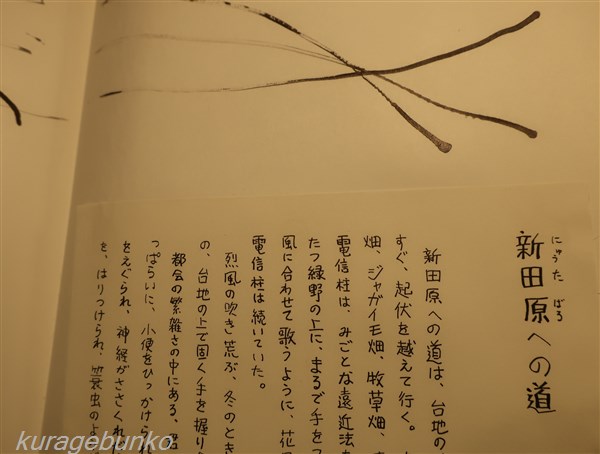 にゅうたばる
新田原への道
新田原への道は、台地の
すぐ、起伏を越えて行く。
畑、ジャガイモ畑、牧草畑、
電信柱は、みごとな遠近法を
たつ緑野の上に、まるで手をつ
風に合わせて歌うように、花
電信柱は続いていた。
烈風の吹き荒ぶ、冬のとき
の、台地の上で固く手を握り
都会の繁雑さの中にある、
っぱらいに、小便をひっかけられ
をえぐられ、神経がささくれ
を、はりつけられ、蓑虫のよ
kuragebunko